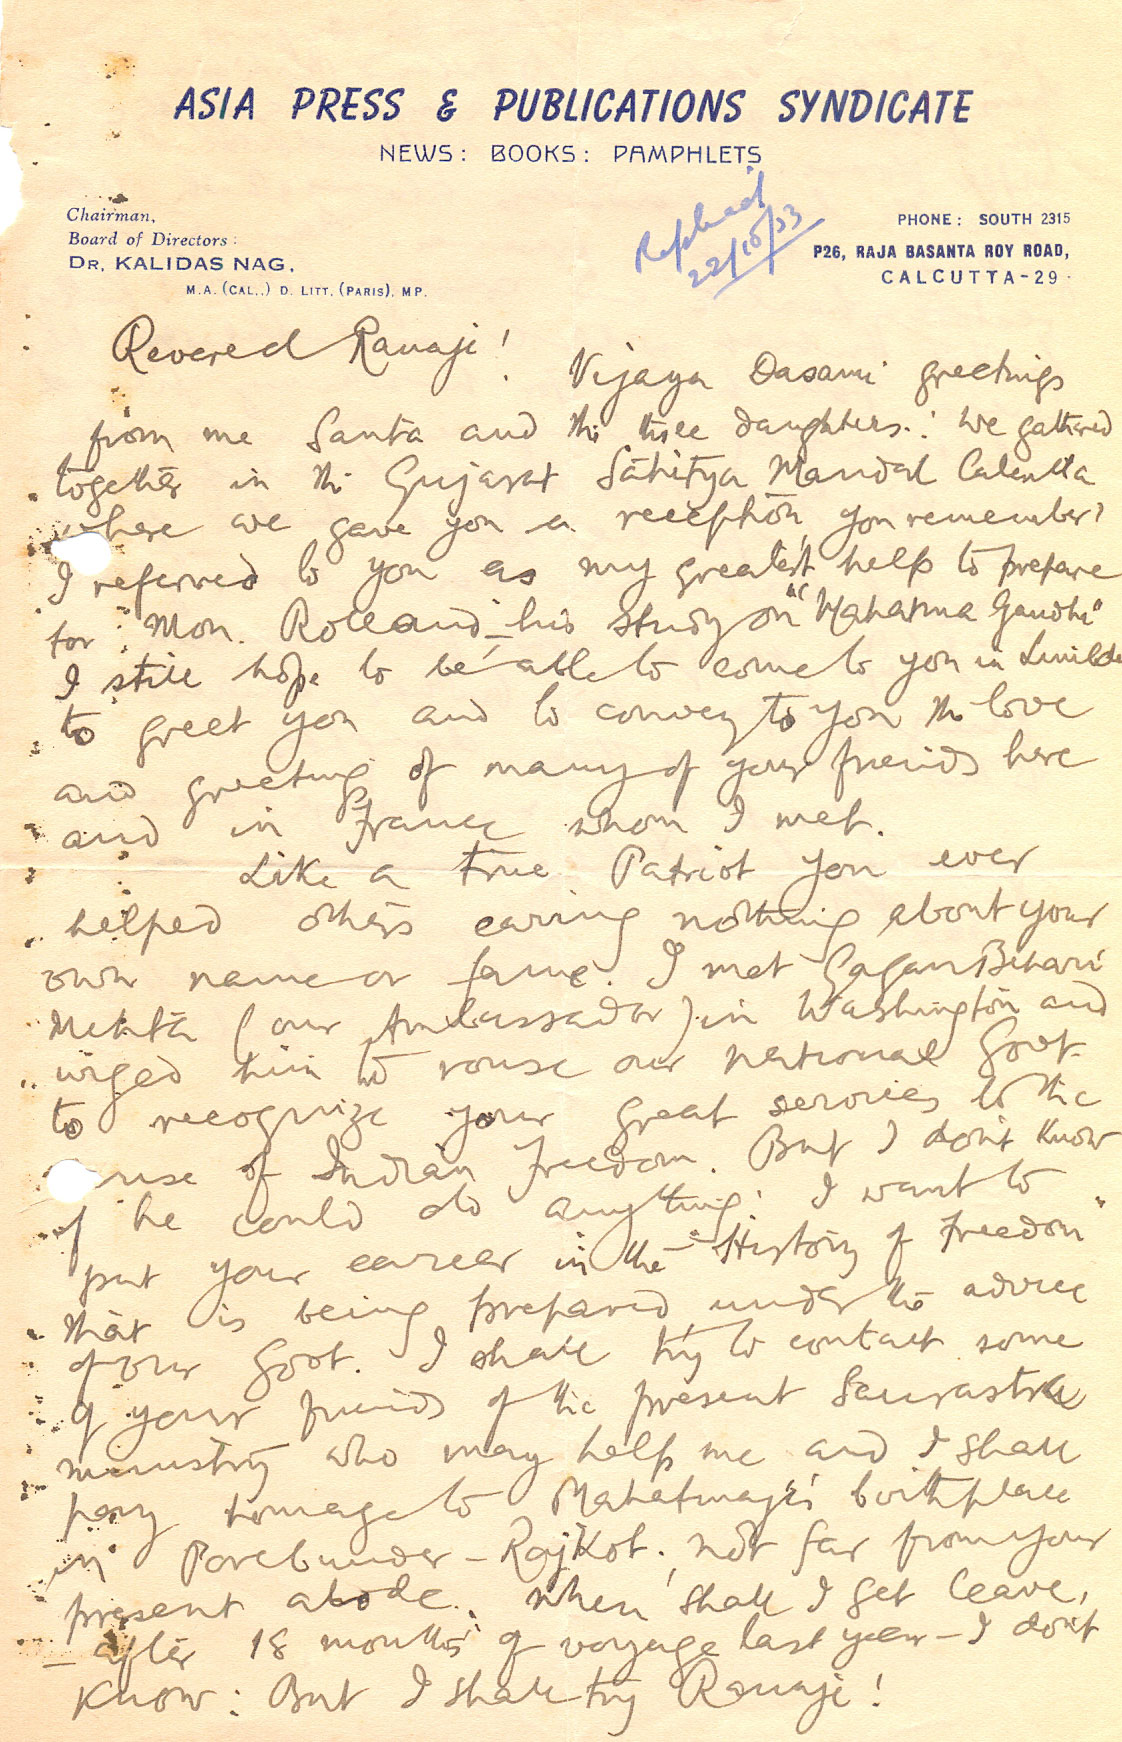 ASIA PRESS & PUBLICATIONS SYNDICATE
NEWS: BOOKS: PAMPHLETS
Chairman,
Board of Directors:
DR. KALIDAS NAG,
M.A. (CAL.,) D. LITT, (PARIS), MP.
Replied
22/10/53
PHONE: SOUTH 2315
P26, RAJA BASANTA ROY ROAD,
CALCUTTA-29.
Revered Ranaji!
Vijaya Dasami greetings
from me Santa and the three daughters.! We gathered
together in the Gujarat Sāhitya Mandal Calcutta
where we gave you a reception, you remember?
I referred to you as my greatest help to prepare
for Mon. Rolland - his study on "Mahatma Gandhi"
I still hope to be able to come to you in
to greet you and to convey to you the love
and greeting of many of your friends here
and in France whom I met.
Like a true Patriot you ever
helped others caring nothing about your
own name or fame. I met Gagan Behari
Mehta (our Ambassador) in Washington and
urged him to rouse our national Govt.
to recognize your great services to the
cause of Indian Freedom. But I don't know
if he could do anything! I want to
put your career in the "History of Freedom"
that is being prepared under the advice
of our Govt. I shall try to contact some
of your friends of the present Saurastra
ministry who may help me and I shall
pay homage to Mahatmaji's birthplace
in Porebunder - Rajkot, not far from your
present abode. When shall I get leave,
- after 18 months of voyage last year - I don't
know: But I shall try Ranaji!